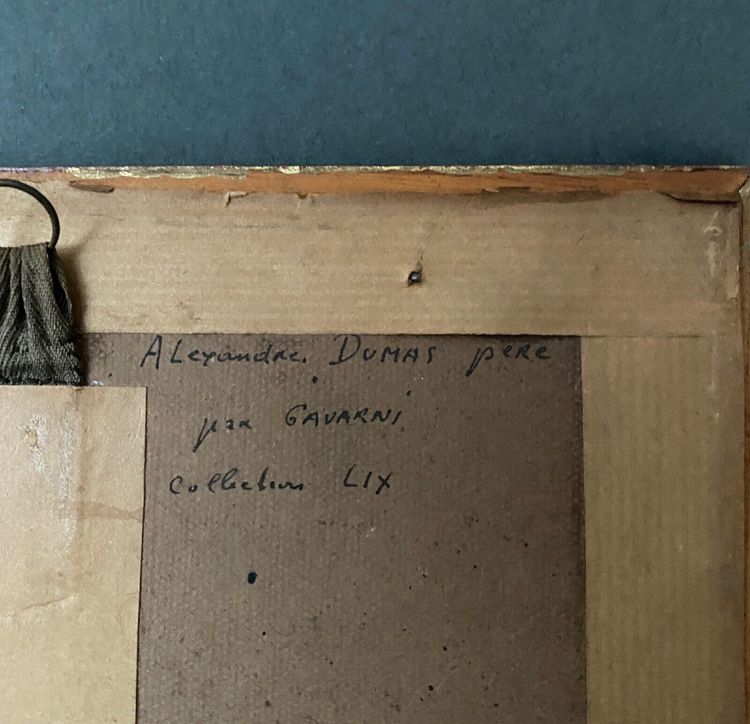 ALexandre. DUMAS pere
par GAVARNI
collection LIX